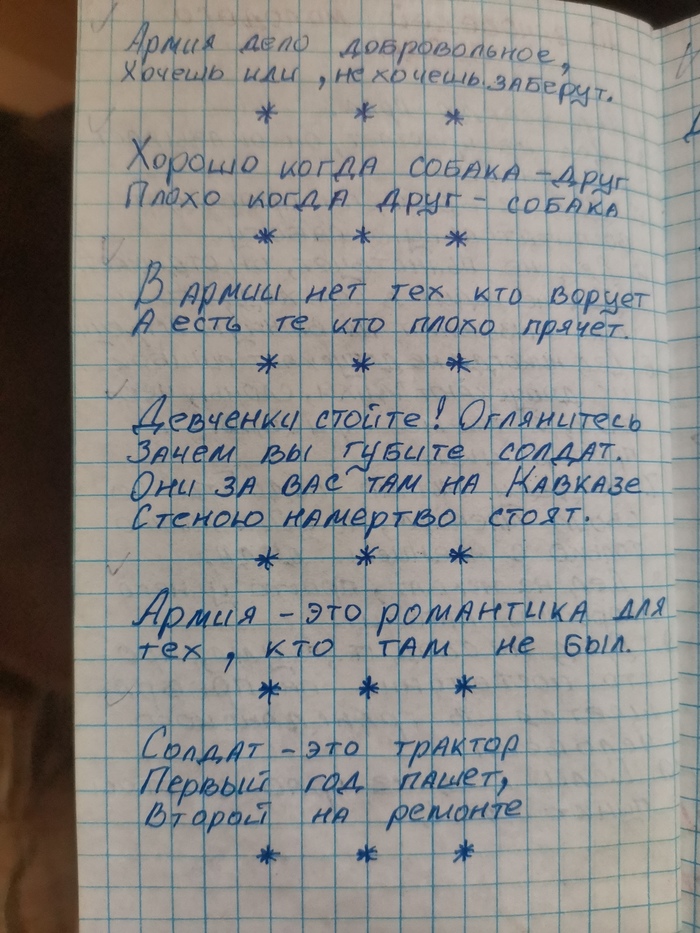 Армия дело добровольное,
Хочешь или, не хочешь заберут.
* * *
Хорошо когда собака - друг
Плохо когда друг - собака
* * *
В армии нет тех кто ворует
А есть те кто плохо прячет.
* * *
Девченки стойте! Оглянитесь
Зачем вы губите солдат.
Они за вас там на Кавказе
Стеною намертво стоят.
* * *
Армия - это романтика для
тех, кто там не был.
* * *
Солдат - это трактор
Первый год пашет,
Второй на ремонте
* * *